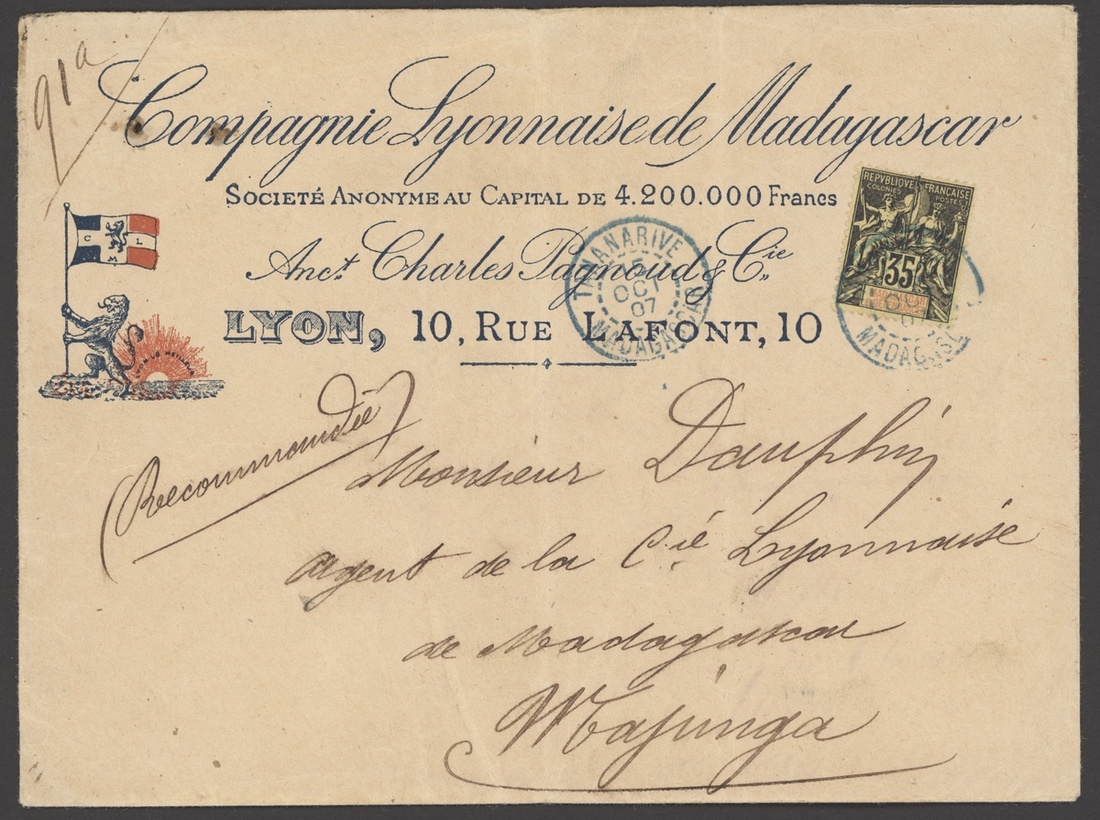 91a
Compagnie Lyonnaise de Madagascar
SOCIETÉ ANONYME AU CAPITAL DE 4.200.000 Francs
Anct. Charles Pagnoud & Cie.
LYON, 10, RUE LAFONT, 10
C L
M
REPUBLIQUE FRANÇAISE
COLONIES POSTES
35
TANANARIVE
15
OCT
07
MADAGASCAR
MADAGASC
Recommandée
Monsieur Dauphin
agent de la Cie Lyonnaise
de Madagascar
Majunga